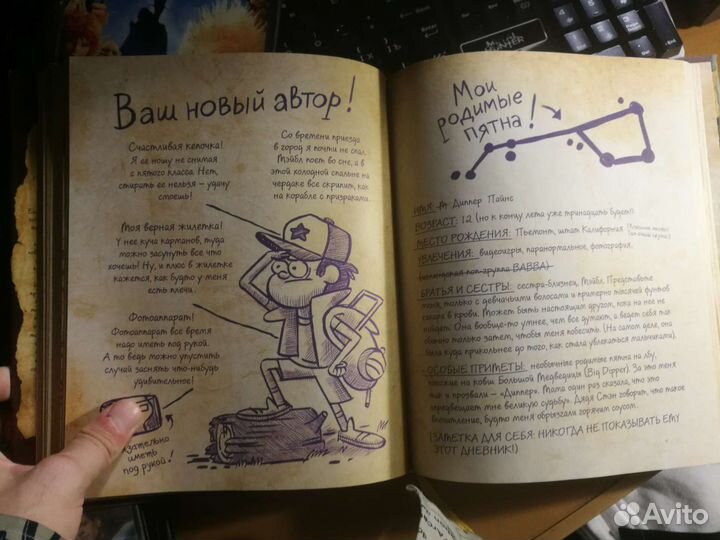 Ваш новый автор!
Счастливая кепочка!
Я её ношу не снимая
с пятого класса. Нет,
стирать её нельзя – удачу
смоешь!
Со времени приезда
в город я почти не спал.
Мэйбл поёт во сне, а в
этой холодной спальне на
чердаке все скрипит, как
на корабле с призраками.
Моя верная жилетка!
У неё куча карманов, туда
можно засунуть все что
хочешь! Ну, и плюс в жилетке
кажется, как будто у меня
есть плечи.
Фотоаппарат!
Фотоаппарат все время
надо иметь под рукой.
А то ведь можно упустить
случай заснять что-нибудь
удивительное!
иметь
под рукой!
Мои
родимые
пятна!
ИМЯ: Диппер Пайнс
ВОЗРАСТ: 12 (но к концу лета уже тринадцать будет!)
МЕСТО РОЖДЕНИЯ: Пьемонт, штат Калифорния
УВЛЕЧЕНИЯ: видеоигры, паранормальное, фотография,
поп-группа BABBA)
БРАТЬЯ И СЕСТРЫ: сестра-близнец, Мэйбл. Представьте
меня, только с девчачьими волосами и примерно тысячей фунтов
сахара в крови. Может быть настоящим другом, пока на нее не
найдет. Она вообще-то умнее, чем все думают, а ведет себя так
обычно только затем, чтобы меня побесить. (На самом деле, она
была куда прикольнее до того, как стала увлекаться мальчиками).
ОСОБЫЕ ПРИМЕТЫ: необычные родимые пятна на лбу,
похожие на ковш Большой Медведицы (Big Dipper). За это меня
так и прозвали – «Диппер». Мама один раз сказала, что это
предвещает мне великую судьбу. Дядя Стэн говорит, что такое
впечатление, будто меня обрызгали горячим соусом.
(ЗАМЕТКА ДЛЯ СЕБЯ: НИКОГДА НЕ ПОКАЗЫВАТЬ ЕМУ
ЭТОТ ДНЕВНИК!)
Avito